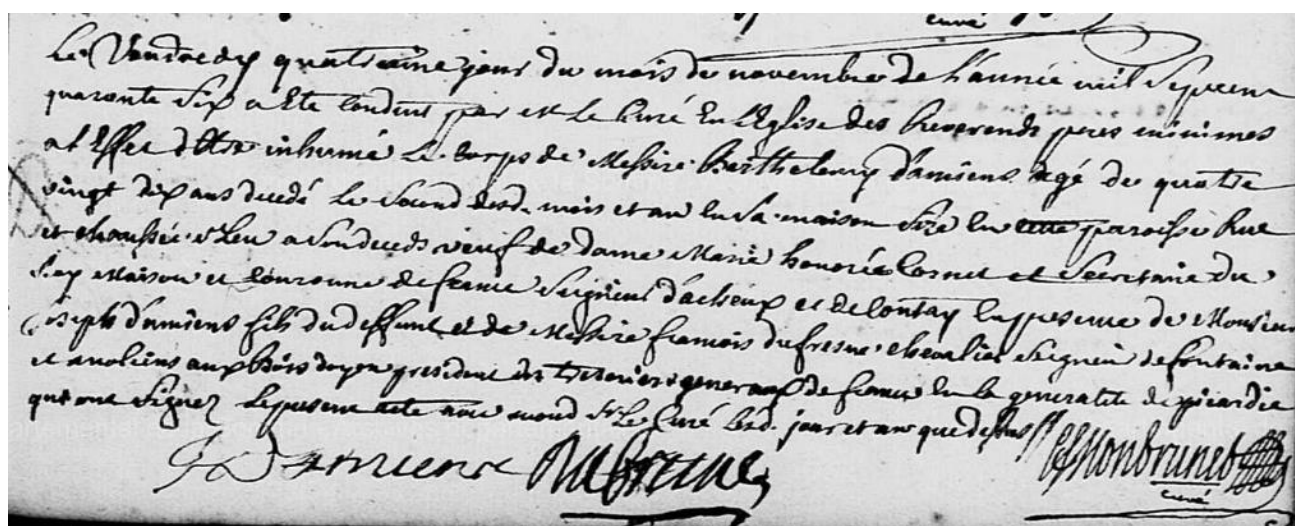 curé
Le Vendredy quatrieme jour du mois de novembre de l'année mil sept cent
quarante six a été conduit par Mr le Curé En l'Eglise des Reverends peres minimes
a l'Effet d'Etre inhumé Le Corps de Messire Barthelemy d'amiens agé de quatre
vingt dix ans decedé Le second desd. mois et an En sa maison size En cette paroisse Rue
et chaussée St Leu a son deceds veuf de dame Marie honorée Cornet et Secretaire du
Roy Maison et Couronne de france Seigneur d'acheux et de Contay En presence de Monsieur
Joseph d'amiens fils du deffunt et de Messire francois dufresne chevalier Seigneur de fontaine
et aux Bois doyen president des tresoriers generaux de france En la generalité de picardie
qui ont Signez Le present acte avec mond. Sr Le Curé Lesd. jour et an que dessus
J Damiens Dufresne
curé